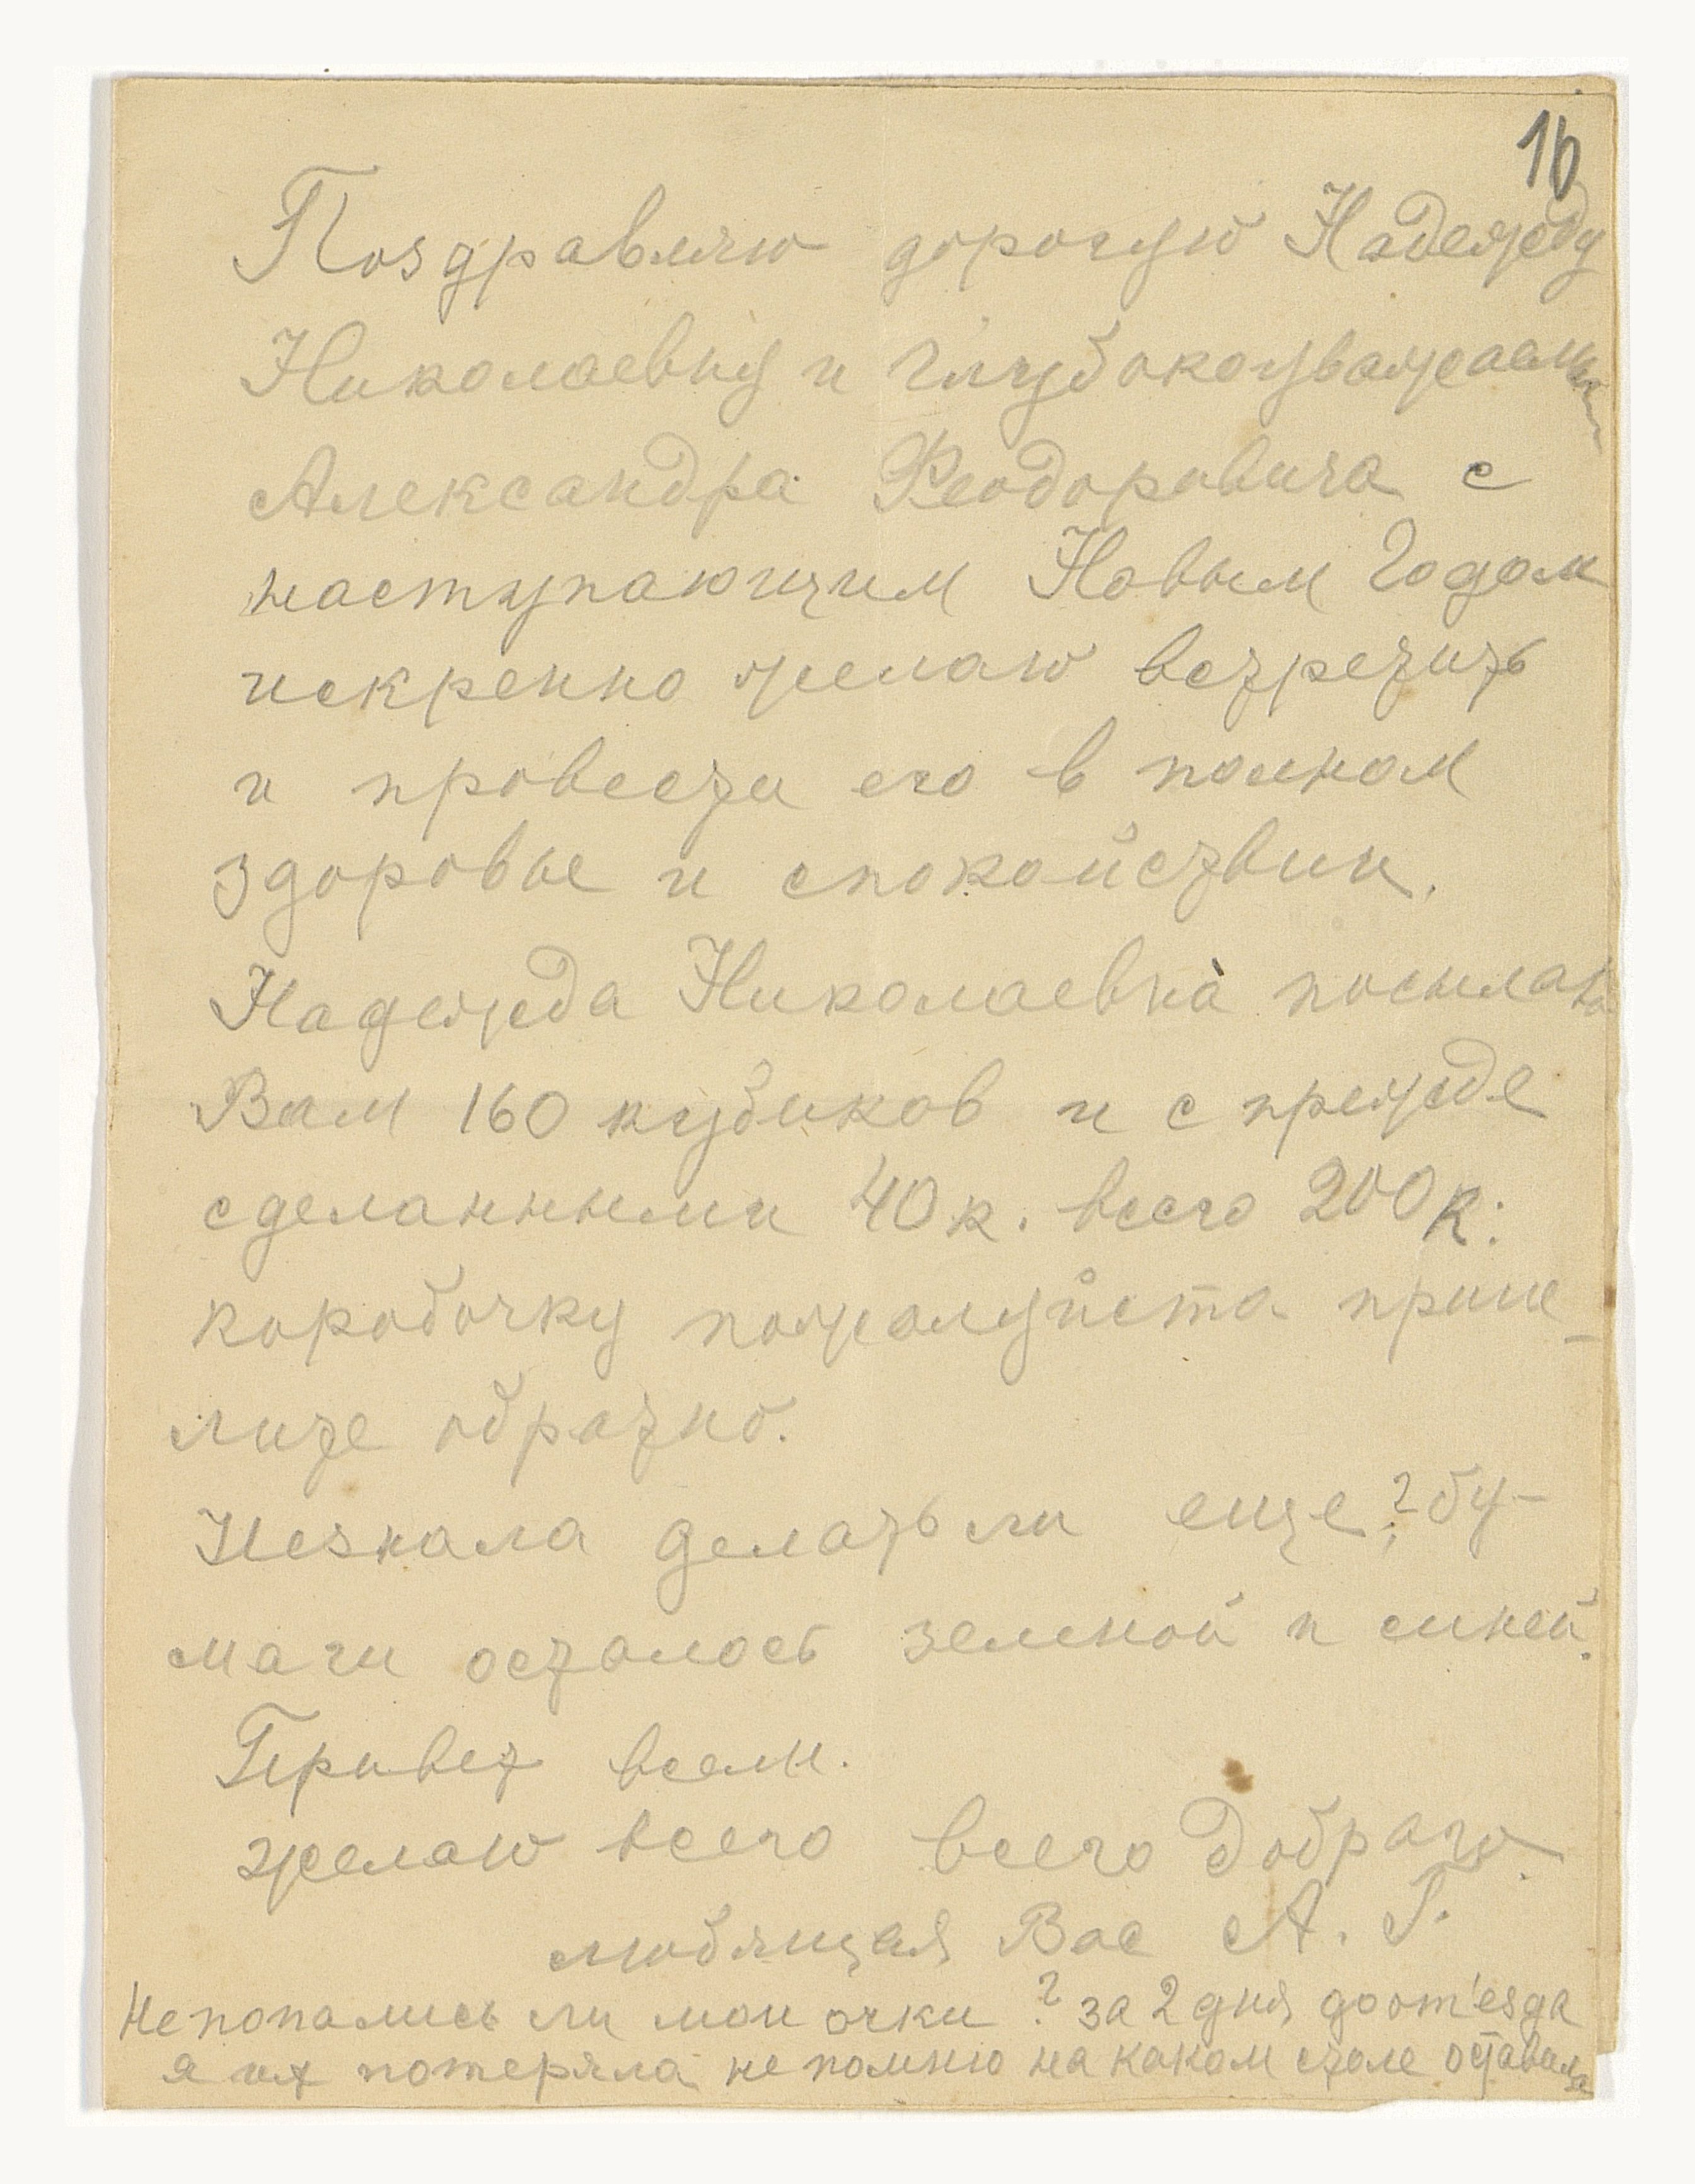 16
Поздравляю дорогую Надежду
Николаевну и глубокоуважаемаго
Александра Феодоровича с
наступающим Новым Годом
искренно желаю встретить
и провести его в полном
здоровье и спокойствии.
Надежда Николаевна посылаю
Вам 160 кубиков и с прежде
сделанными 40 к. всего 200 к:
коробочку пожалуйста приш-
лите обратно.
Незнала делать ли еще? бу-
маги осталось зеленой и синей.
Привет всем.
желаю всего всего добраго.
любящая Вас А. Г.
Не попались ли мои очки? за 2 дня до от'езда
я их потеряла не помню на каком столе оставила